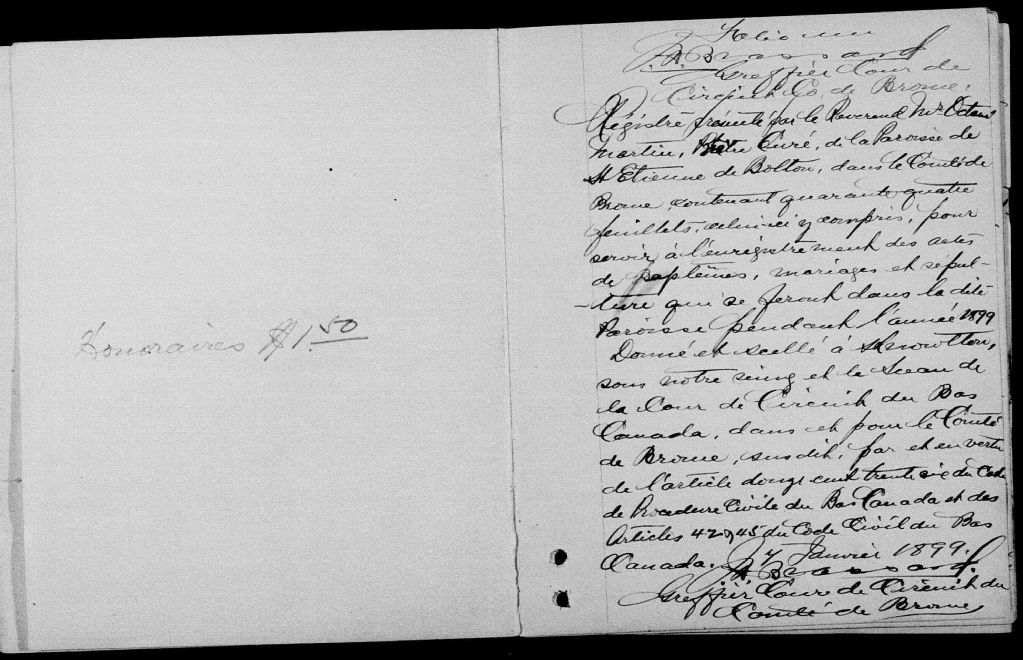 Honoraires $1.50
Folio un
A. Brassard
Greffier Cour de
Circuit Co. de Brome.
Régistre présenté par le Révérend Mr Octave
Martin, Ptre Curé, de la Paroisse de
St Etienne de Bolton, dans le Comté de
Brome, contenant quarante quatre
feuillets, celui-ci y compris, pour
servir à l'enrégistrement des actes
de Baptêmes, mariages et sépul-
-ture qui se feront dans la dite
Paroisse pendant l'année 1899
Donné et scellé à Knowlton,
sous notre seing et le Sceau de
la Cour de Circuit du Bas
Canada, dans et pour le Comté
de Brome, susdit, par et en vertu
de l'article douze cent trente six du Code
de Procedure Civile du Bas Canada et des
Articles 42 45 du Code Civil du Bas
Canada. 7 Janvier 1899.
A. Brassard.
Greffier Cour de Circuit du
Comté de Brome